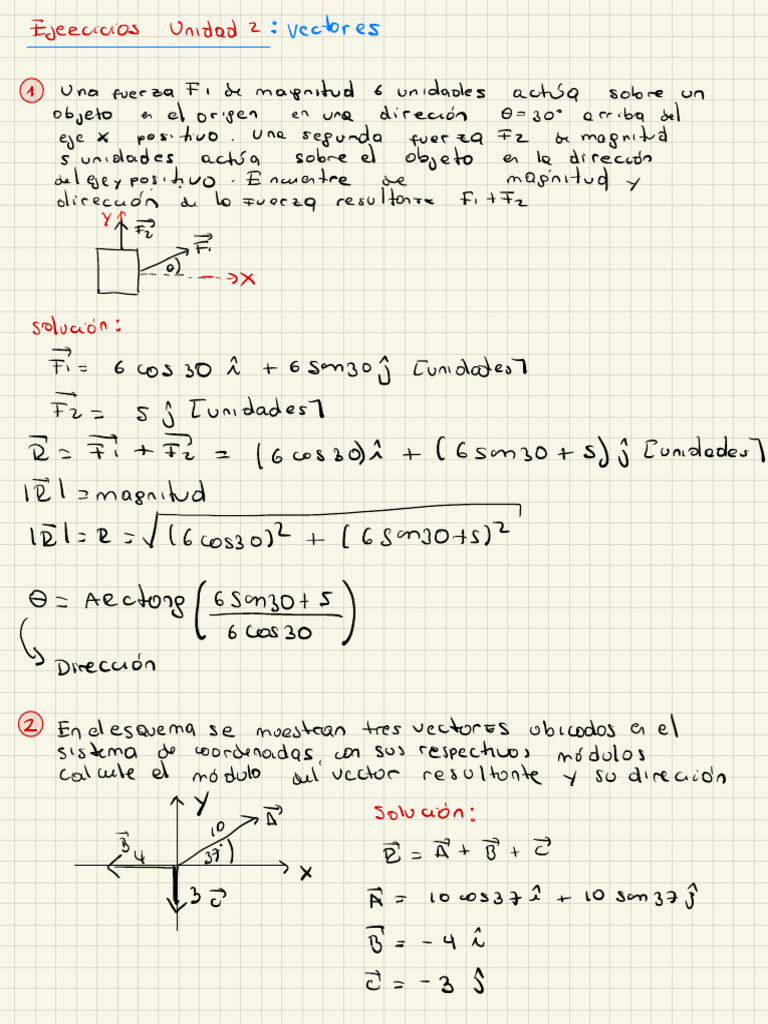 Ejercicios Unidad 2 : vectores
① Una fuerza F1 de magnitud 6 unidades actúa sobre un
objeto en el origen en una direción θ = 30° arriba del
eje x positivo. Una segunda fuerza F2 de magnitud
5 unidades actúa sobre el objeto en la dirección
del eje y positivo. Encuentre de magnitud y
dirección de la fuerza resultante F1 + F2
Y
F⃗2
F⃗1
θ
X
Solución:
F⃗1 = 6 cos 30 î + 6 sen30 ĵ [unidades]
F⃗2 = 5 ĵ [unidades]
R⃗ = F⃗1 + F⃗2 = (6 cos30) î + (6 sen30 + 5) ĵ [unidades]
|R⃗| = magnitud
|R⃗| = R = √((6 cos30)² + (6 sen30+5)²)
θ = Arctang (6 sen30 + 5 / 6 cos 30)
Dirección
② En el esquema se muestran tres vectores ubicados en el
sistema de coordenadas, con sus respectivos módulos
calcule el módulo del vector resultante y su dirección
Y
10
A⃗
37°
B⃗
4
X
3 C⃗
Solución:
R⃗ = A⃗ + B⃗ + C⃗
A⃗ = 10 cos37 î + 10 sen37 ĵ
B⃗ = - 4 î
C⃗ = - 3 ĵ